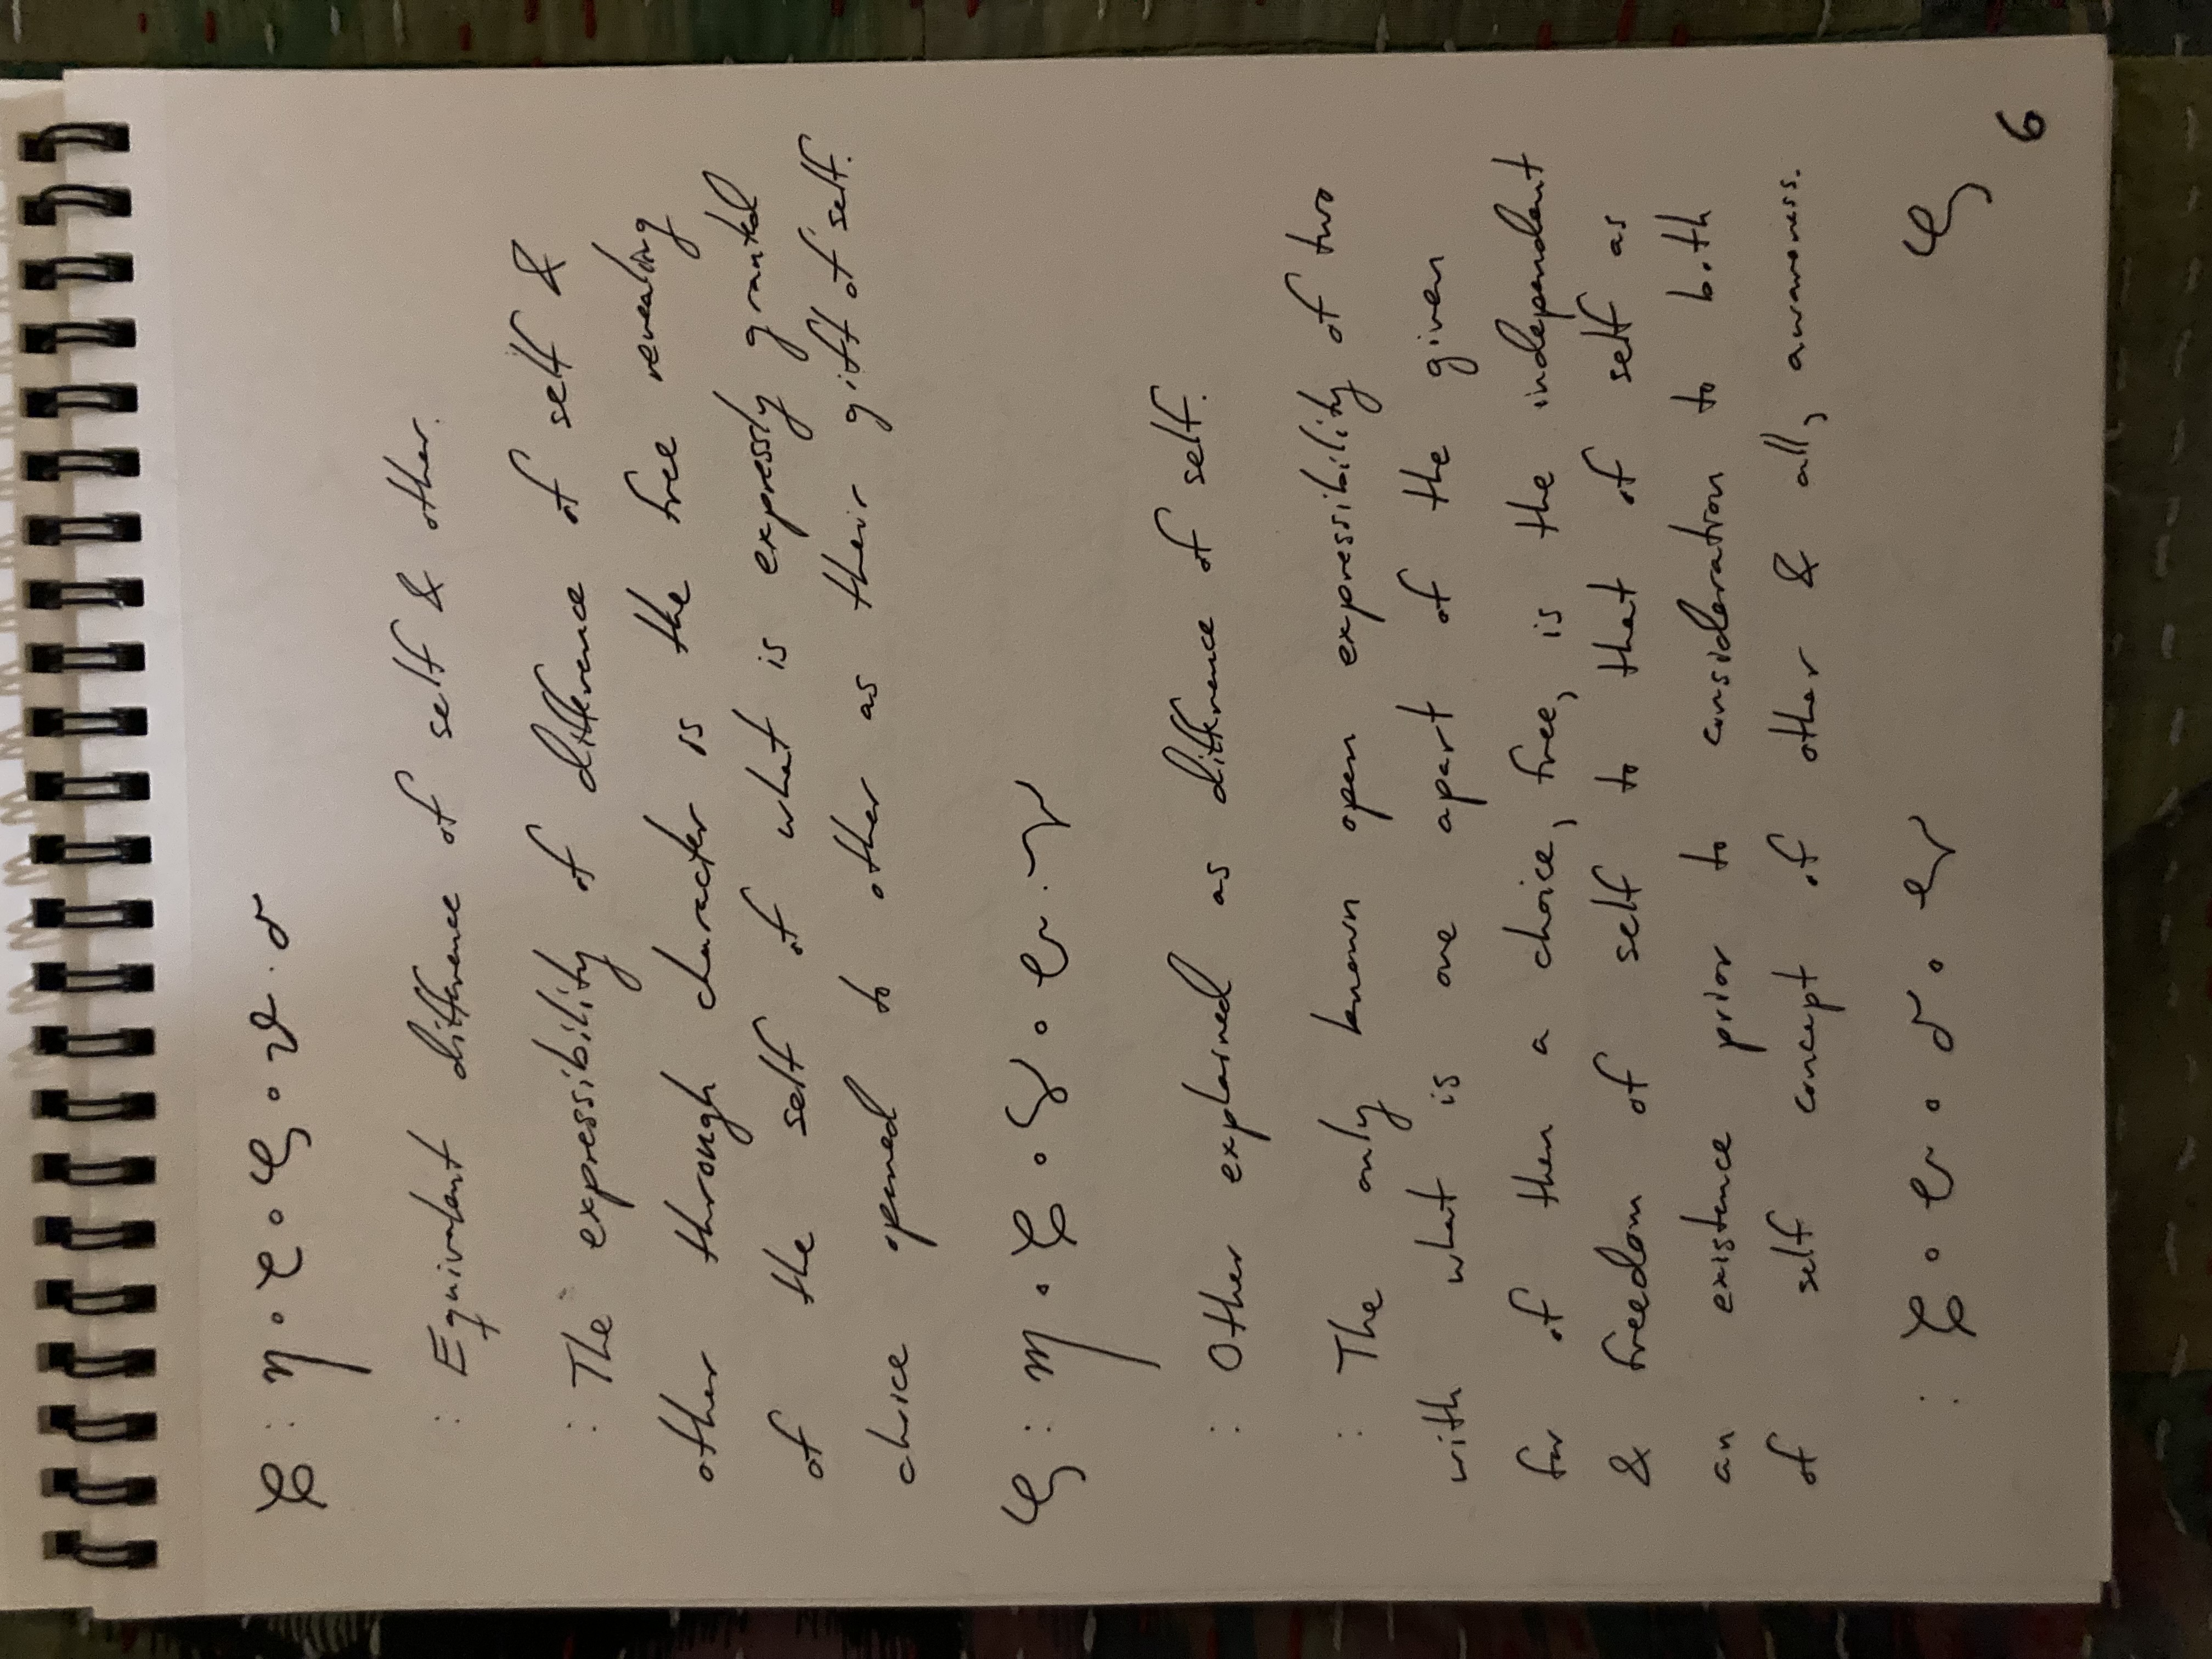 : Equivalent difference of self & other.
: The expressibility of difference of self &
other through character is the free revealing
of the self of what is expressly granted
choice opened to other as their gift of self.
: Other explained as difference of self.
: The only known open expressibility of two
with what is one apart of the given
for of then a choice, free, is the independent
& freedom of self to that of self as
an existence prior to consideration to both
of self concept of other & all, awareness.
6